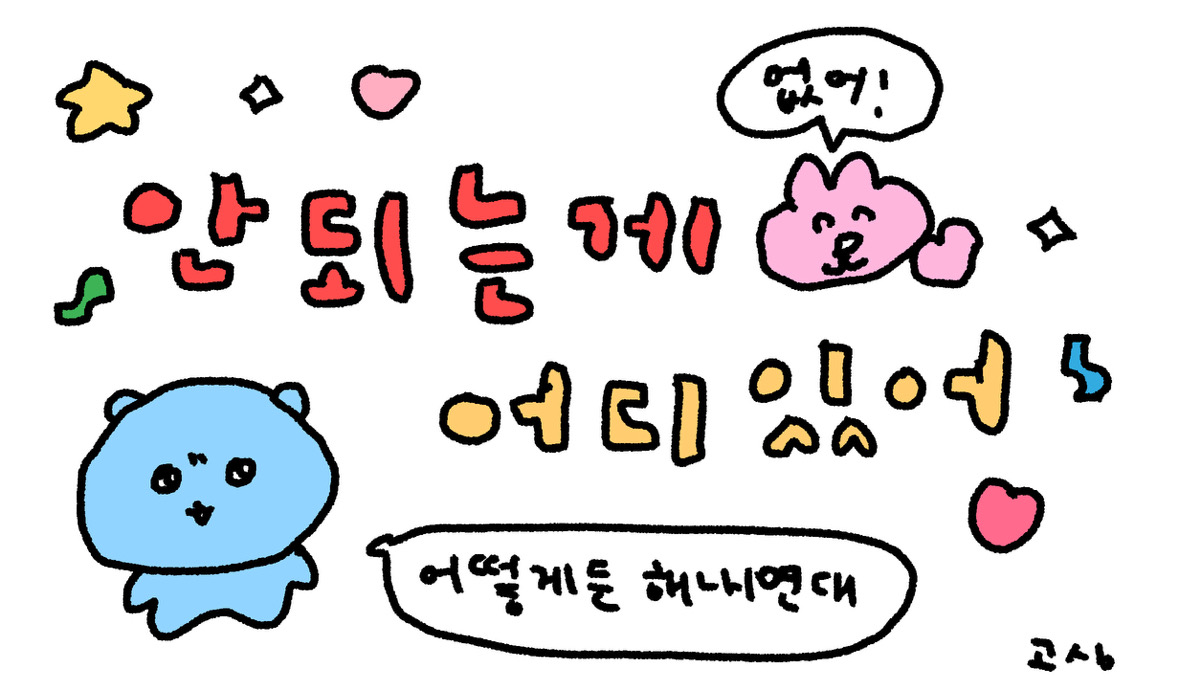 없어!
안되는게
어디있어
어떻게든 해내면대
고심